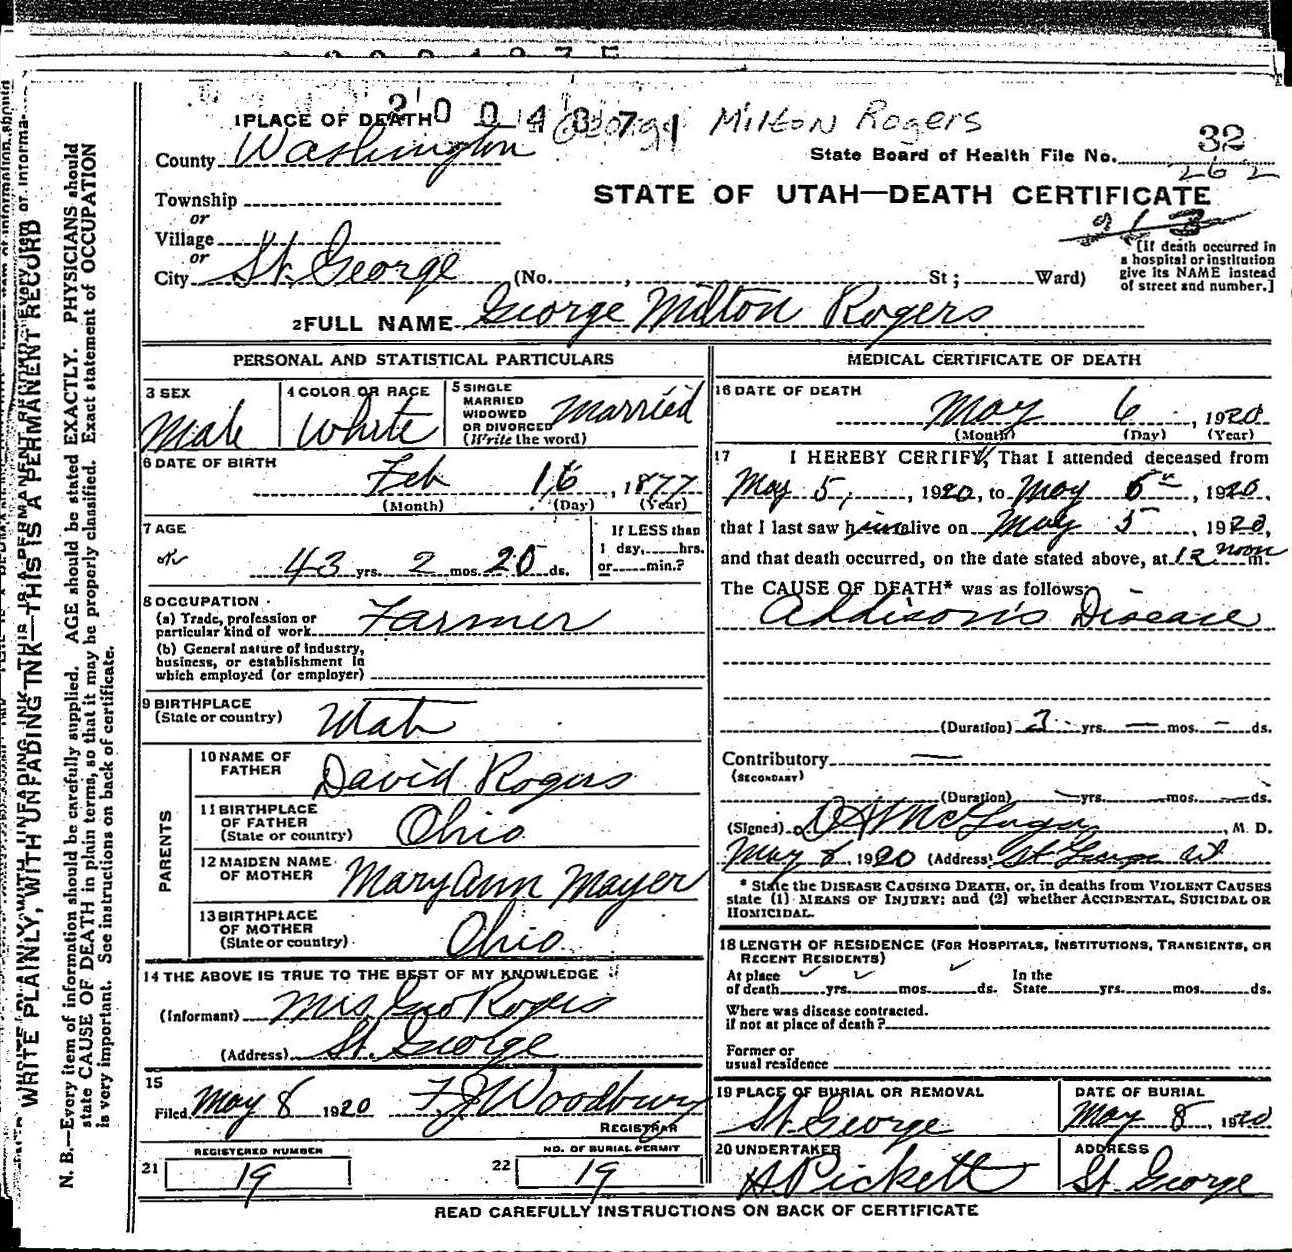 2004371 George Milton Rogers
1 PLACE OF DEATH
County Washington
State Board of Health File No. 32
262
Township
STATE OF UTAH—DEATH CERTIFICATE
or
Village
213
or
City St. George (No. , St ; Ward)
[If death occurred in
a hospital or institution
give its NAME instead
of street and number.]
2 FULL NAME George Milton Rogers
PERSONAL AND STATISTICAL PARTICULARS
3 SEX
Male
4 COLOR OR RACE
White
5 SINGLE
MARRIED
WIDOWED
OR DIVORCED
(Write the word)
Married
6 DATE OF BIRTH
Feb 16, 1877
(Month) (Day) (Year)
7 AGE
43 yrs. 2 mos. 20 ds.
If LESS than
1 day, hrs.
or min.?
8 OCCUPATION
(a) Trade, profession or
particular kind of work Farmer
(b) General nature of industry,
business, or establishment in
which employed (or employer)
9 BIRTHPLACE
(State or country) Utah
PARENTS
10 NAME OF
FATHER David Rogers
11 BIRTHPLACE
OF FATHER
(State or country) Ohio
12 MAIDEN NAME
OF MOTHER Mary Ann Mayer
13 BIRTHPLACE
OF MOTHER
(State or country) Ohio
14 THE ABOVE IS TRUE TO THE BEST OF MY KNOWLEDGE
(Informant) Mrs. Geo Rogers
(Address) St. George
15
Filed May 8 1920 F J Woodbury
REGISTRAR
REGISTERED NUMBER
21 19
NO. OF BURIAL PERMIT
22 19
MEDICAL CERTIFICATE OF DEATH
16 DATE OF DEATH
May 6, 1920
(Month) (Day) (Year)
17 I HEREBY CERTIFY, That I attended deceased from
May 5, , 1920, to May 6th, 1920,
that I last saw him alive on May 5, 1920,
and that death occurred, on the date stated above, at 12 noon m.
The CAUSE OF DEATH* was as follows:
Addison's Disease
(Duration) 3 yrs. — mos. — ds.
Contributory —
(SECONDARY)
(Duration) — yrs. — mos. — ds.
(Signed) , M. D.
May 8, 1920 (Address) St George Ut
* State the DISEASE CAUSING DEATH, or, in deaths from VIOLENT CAUSES
state (1) MEANS OF INJURY; and (2) whether ACCIDENTAL, SUICIDAL OR
HOMICIDAL.
18 LENGTH OF RESIDENCE (FOR HOSPITALS, INSTITUTIONS, TRANSIENTS, OR
RECENT RESIDENTS)
At place In the
of death yrs. mos. ds. State yrs. mos. ds.
Where was disease contracted.
if not at place of death?
Former or
usual residence
19 PLACE OF BURIAL OR REMOVAL
St. George
DATE OF BURIAL
May 8, 1920
20 UNDERTAKER
A. Pickett
ADDRESS
St. George
READ CAREFULLY INSTRUCTIONS ON BACK OF CERTIFICATE
WRITE PLAINLY, WITH UNFADING INK—THIS IS A PERMANENT RECORD
N. B.—Every item of information should be carefully supplied. AGE should be stated EXACTLY. PHYSICIANS should
state CAUSE OF DEATH in plain terms, so that it may be properly classified. Exact statement of OCCUPATION
is very important. See instructions on back of certificate.